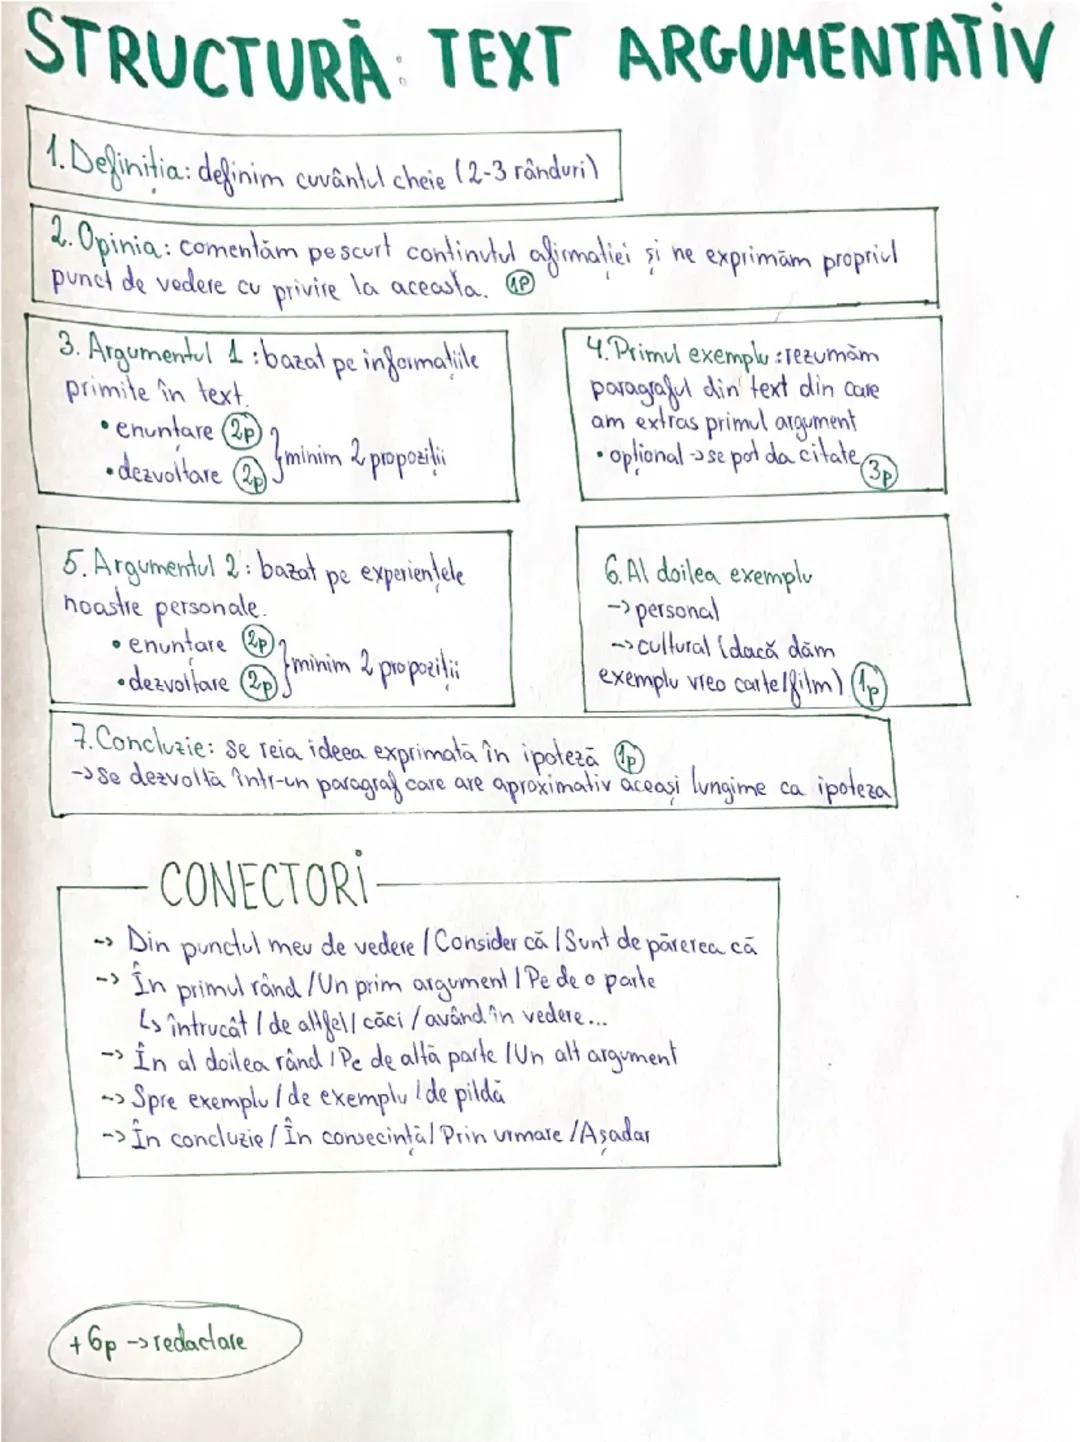 STRUCTURĂ: TEXT ARGUMENTATIV
1. Definiția: definim cuvântul cheie (2-3 rânduri)
2. Opinia: comentăm pe scurt continutul afirmației și ne exprimăm propriul
punct de vedere cu privire la aceasta. 1P
3. Argumentul 1: bazat pe informațiile
primite în text.
• enunțare 2p
• dezvoltare 2p } minim 2 propoziții
4. Primul exemplu: rezumăm
paragraful din text din care
am extras primul argument
• opțional -> se pot da citate 3p
5. Argumentul 2: bazat pe experiențele
noastre personale.
• enunțare 2p
• dezvoltare 2p } minim 2 propoziții
6. Al doilea exemplu
-> personal
-> cultural (dacă dăm
exemplu vreo carte/film) 1p
7. Concluzie: se reia ideea exprimată în ipoteză 1p
-> Se dezvoltă într-un paragraf care are aproximativ aceași lungime ca ipoteza
CONECTORI
-> Din punctul meu de vedere / Consider că / Sunt de părerea că
-> În primul rând / Un prim argument / Pe de o parte
↳ întrucât / de altfel / căci / având în vedere...
-> În al doilea rând / Pe de altă parte / Un alt argument
-> Spre exemplu / de exemplu / de pildă
-> În concluzie / În consecință / Prin urmare / Așadar
+ 6p -> redactare